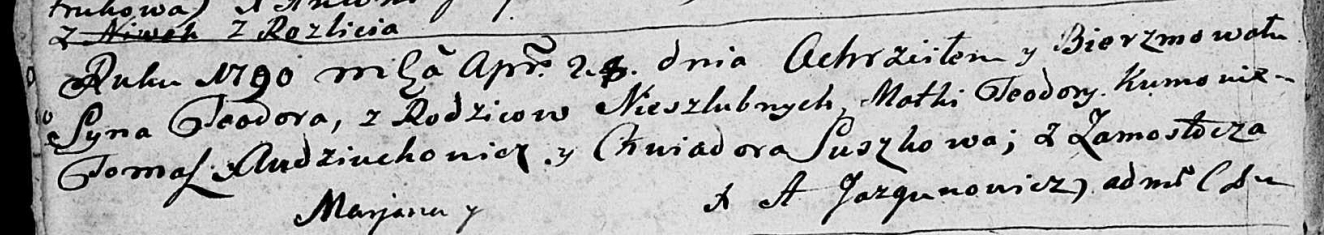 z Niwek z Rozlicia
Roku 1790 mſca Apr. 24. dnia Ochrzciłem y Bierzmowałem
Syna Teodora, z Rodzicow Nieszlubnych, Matki Teodory. Kumowie
Tomaſz Audziuchowicz y Chwiadora Suszkowa; z Zamostocza
Marjanu y X A Jazgunowicz, adm